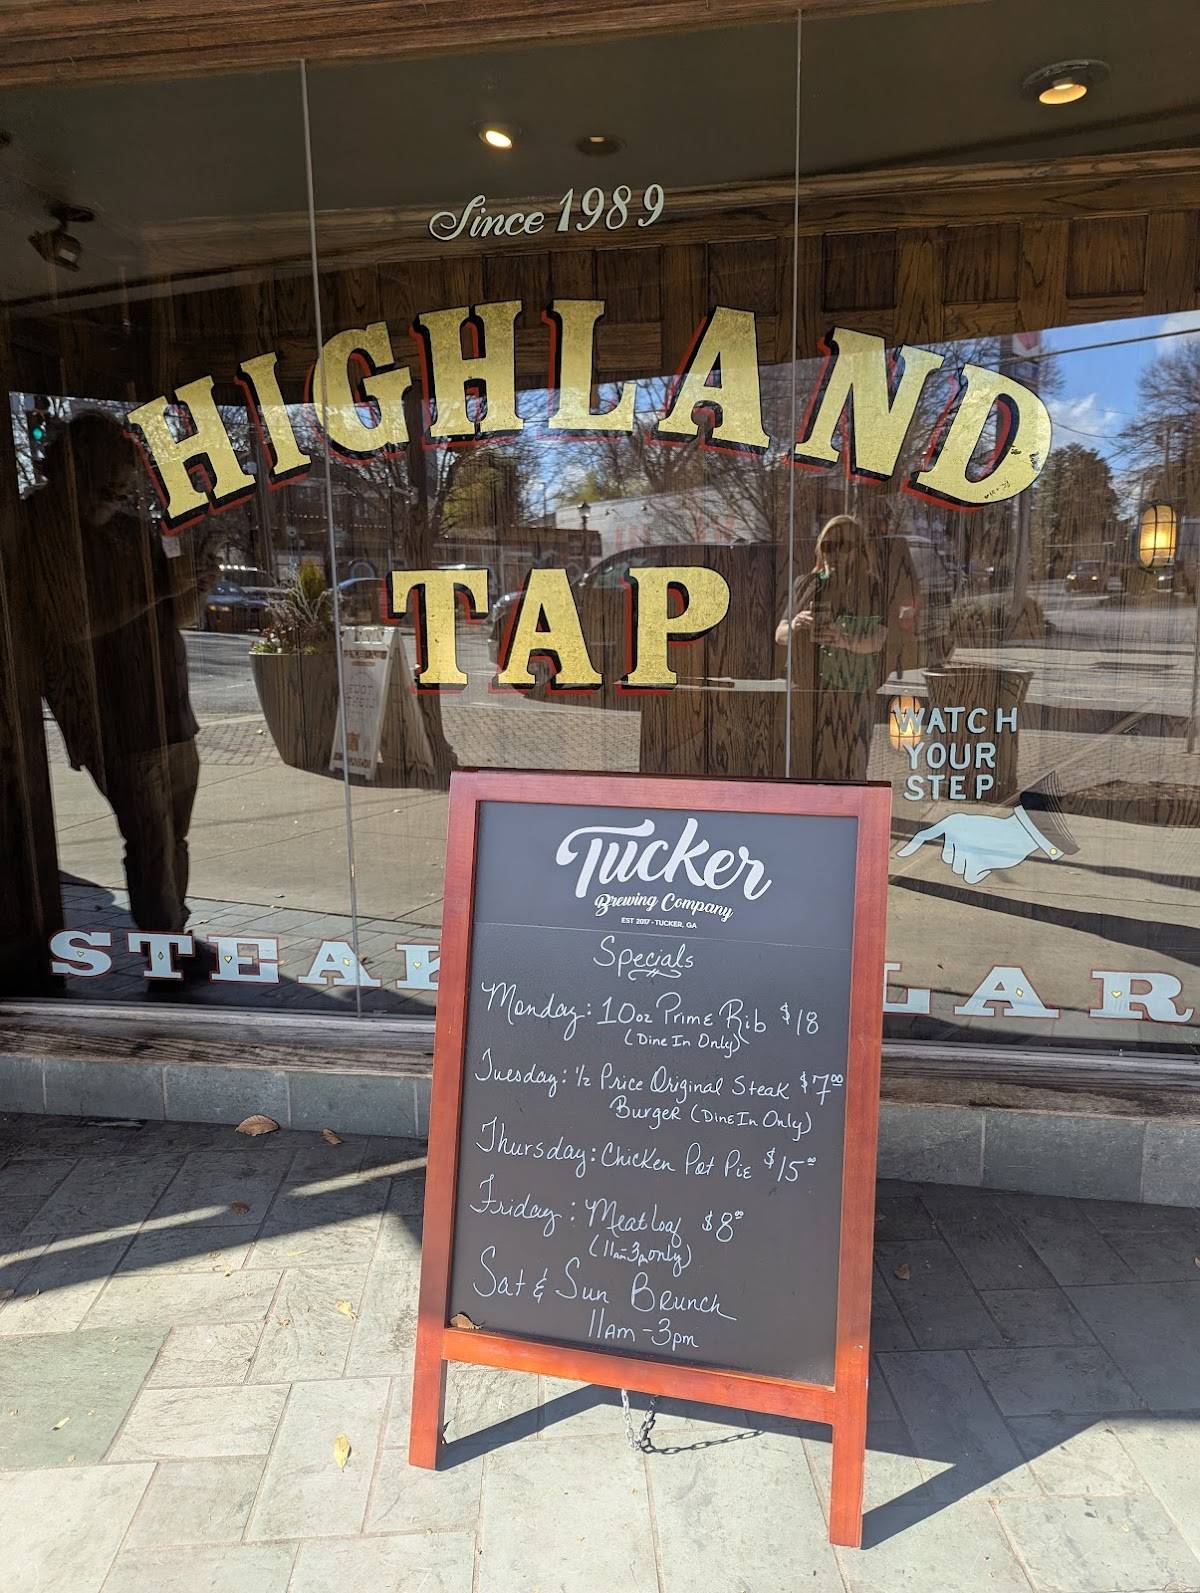 Since 1989
HIGHLAND
TAP
WATCH
YOUR
STEP
STEAK
LAR
Tucker
Brewing Company
EST 2017 - TUCKER, GA
Specials
Monday: 10oz Prime Rib $18
(Dine In Only)
Tuesday: 1/2 Price Original Steak $7.00
Burger (Dine In Only)
Thursday: Chicken Pot Pie $15.00
Friday: Meatloaf $8.00
(11am-3pm only)
Sat & Sun Brunch
11am-3pm